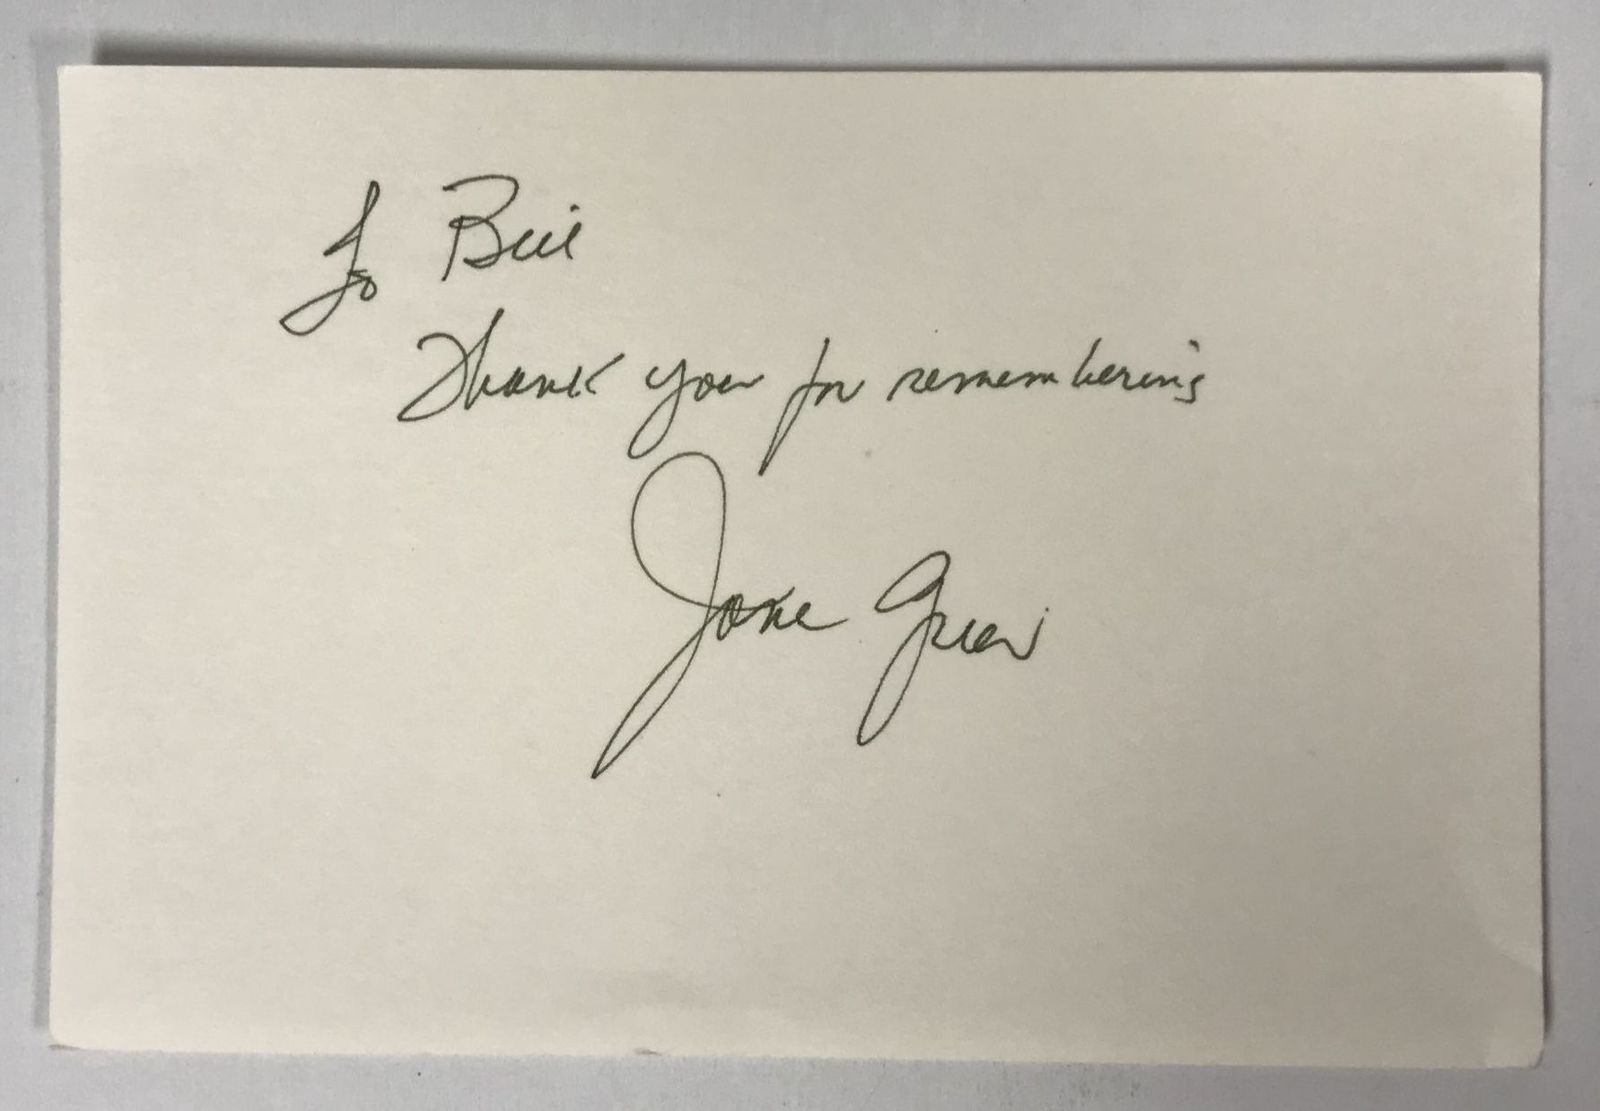 To Bill
Thank you for remembering
Jane Greer